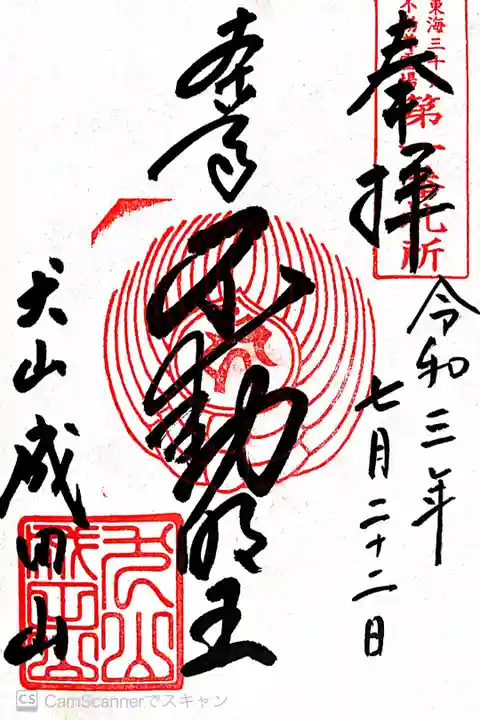 奉拝
令和三年
七月二十二日
本尊
不動明王
犬山成田山
東海三十
第一番札所
CamScannerでスキャン